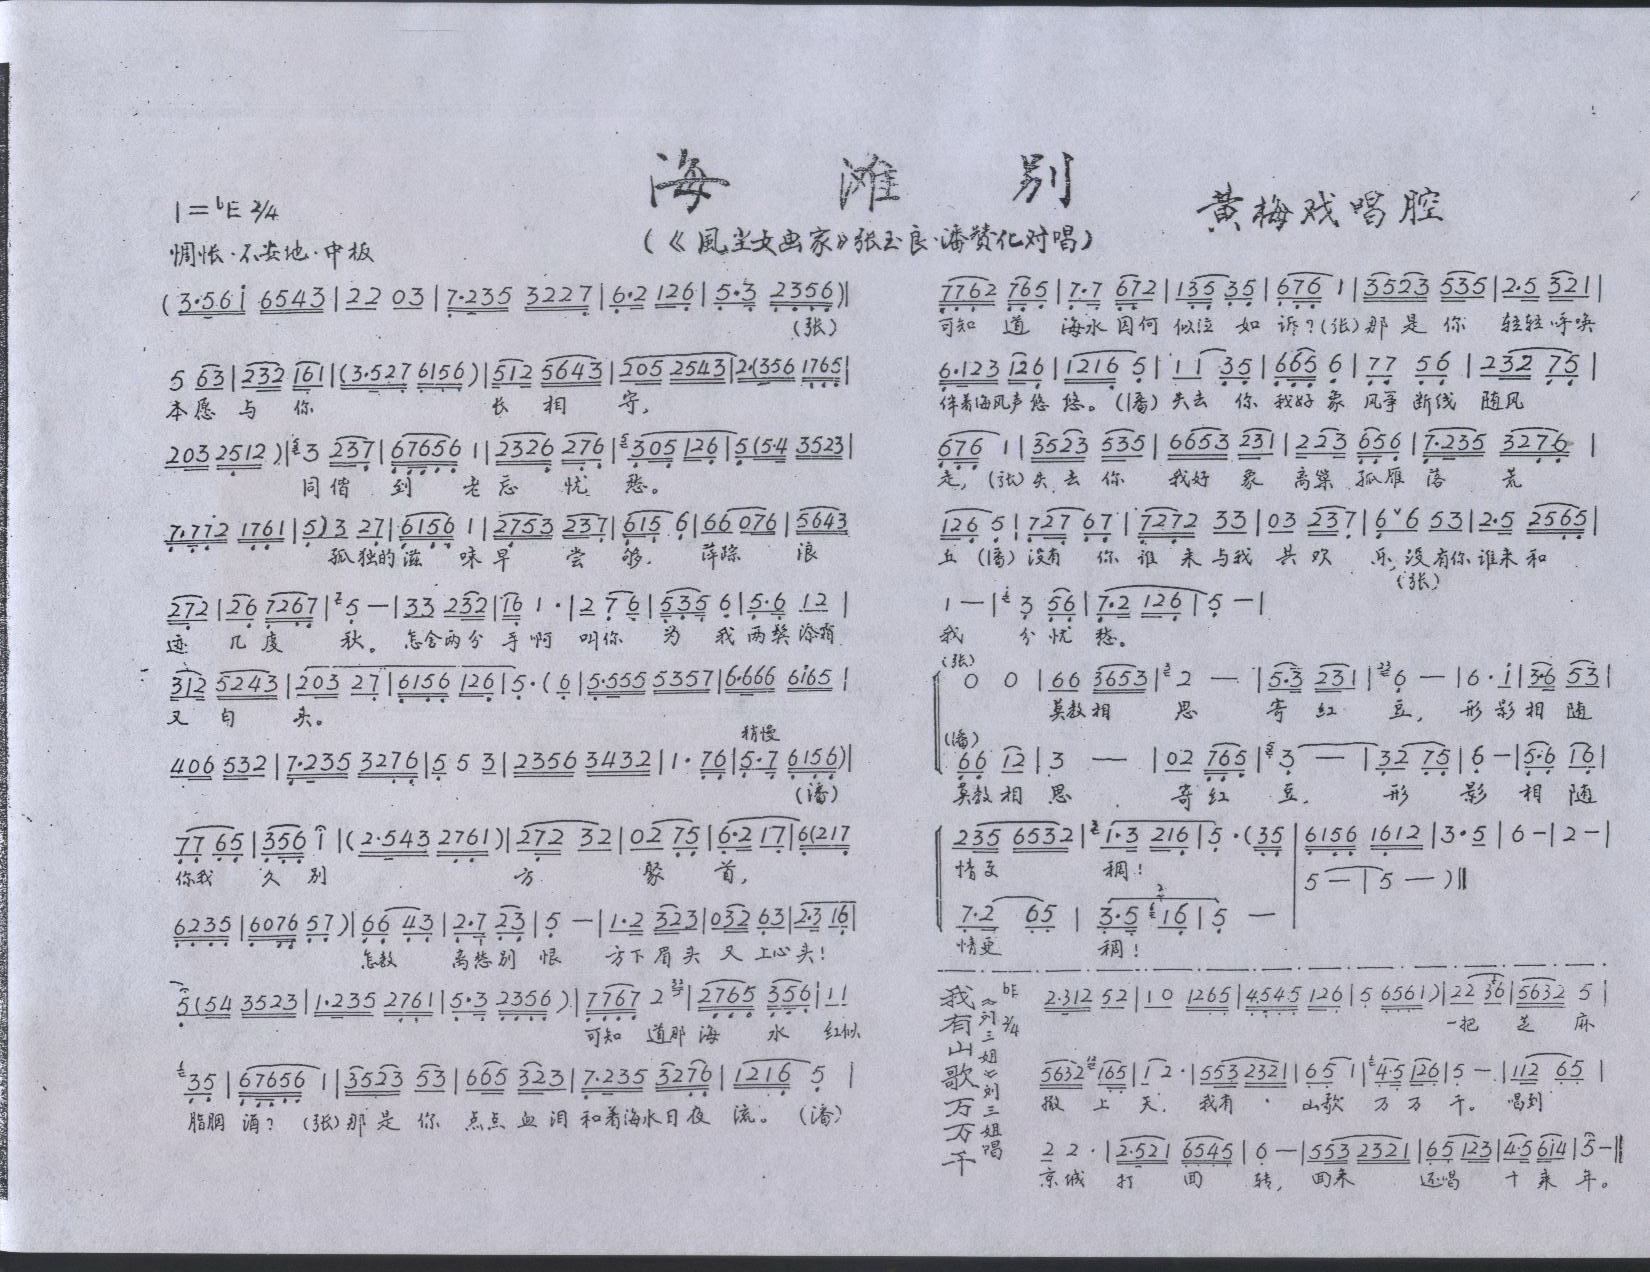 海 滩 别
黄梅戏唱腔
(《風尘女画家》张玉良·潘赞化对唱)
1=♭E 2/4
惆怅·不安地·中板
(3·561̇ 6543|22 03|7·235 3227|6·2 126|5·3 2356)|
(张)
5 63|232 161|(3·527 6156)|512 5643|205 2543|2·(356 1765|
本愿 与 你 长 相 守,
203 2512)|3 237|67656 1|2326 276|305 126|5(5·4 3523|
同偕 到 老 忘 忧 愁。
7·772 1761|5)3 27|6156 1|2753 237|615 6|66 076|5643
孤独的滋 味 早 尝 够, 萍踪 浪
272|26 7267|5 —|33 232|16 1·|2 76|535 6|5·6 12|
迹 几 度 秋。 怎舍两分 手 啊 叫你 为 我 两鬓 添霜
312 5243|203 27|6156 126|5·(6|5·555 5357|6·666 6165|
又 白 头。
稍慢
406 532|7·235 3276|5 5 3|2356 3432|1·76|5·7 6156)|
(潘)
77 65|356 1̇|(2·543 2761)|272 32|02 75|6·2 17|6(217
你我 久 别 方 聚 首,
6235|6076 57)|66 43|2·7 23|5 —|1·2 323|032 63|2·3 16|
怎教 离愁别 恨 方下眉头 又 上心头!
5(54 3523|1·235 2761|5·3 2356)|7767 2|2765 356|11
可知 道那 海 水 红似
35|67656 1|3523 53|665 323|7·235 3276|1216 5|
胭脂 酒? (张)那 是 你 点点 血 泪 和着海水日夜 流。 (潘)
7762 765|7·7 672|135 35|676 1|3523 535|2·5 321|
可知 道 海水 因何 似泣 如 诉?(张)那 是 你 轻轻 呼唤
6·123 126|1216 5|11 35|665 6|77 56|232 75|
伴着海风声悠 悠。(潘) 失去 你 我好 象 风筝 断线 随风
676 1|3523 535|6653 231|223 656|7·235 3276|
走,(张)失 去 你 我好 象 离巢 孤雁 落 荒
126 5|727 67|7272 33|03 237|6ˇ6 53|2·5 2565|
丘 (潘)没有 你 谁 来 与我 共 欢 乐, 没有你 谁来 和
(张)
1 —|3 56|7·2 126|5 —|
我 分 忧 愁。
(张)
0 0|66 3653|2 —|5·3 231|6 —|6·1̇|3·6 53|
莫教相 思 寄 红 豆, 形 影 相 随
(潘)
66 12|3 —|02 765|3 —|32 75|6 —|5·6 16|
莫教相 思 寄红 豆, 形 影 相 随
235 6532|1·3 216|5·(35|6156 1612|3·5|6 —|2 —|
情更 稠!
5 —|5 —)‖
7·2 65|3·5 16|5 —
情更 稠!
我有山歌万万千
《刘三姐》刘三姐唱
♭E 2/4
2·312 52|10 1265|4545 126|5 6561)|22 36|5632 5|
一把 芝 麻
5632 165|1 2·|553 2321|65 1|4·5 126|5 —|112 65|
撒 上 天, 我有 山歌 万 万 千。 唱到
2 2·|2·521 6545|6 —|553 2321|65 123|4·5 614|5 —‖
京城 打 回 转, 回来 还唱 十 来 年。